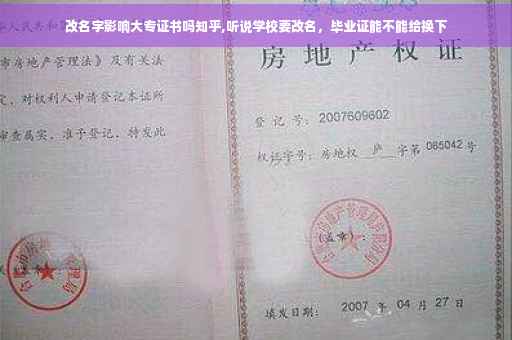 改名字影响大专证书吗知乎,听说学校要改名，毕业证能不能给换下
市房地产管理法》及有关法
定，对权利人申请登记本证所
审查属实，准予登记，特发此
房地产权证
登记号：2007609602
权证字号：房地权 庐 字第 065042 号
(盖章)：
填发日期：2007 年 04 月 27 日